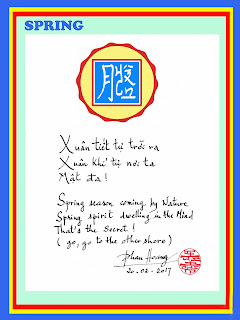 SPRING
Xuân tiết tự trời ra
Xuân khí tự nơi ta
Mật đa !
Spring season coming by Nature
Spring spirit dwelling in the Mind
That's the Secret !
( go, go to the other shore )
Phan Hoang
20-02-2017